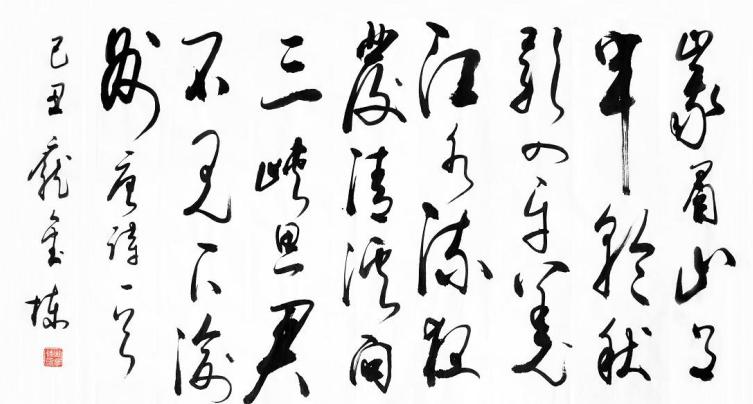 峩眉山月
半輪秋
影入平羌
江水流夜
發清溪向
三峽思君
不見下渝
州唐詩一首
己丑金棟